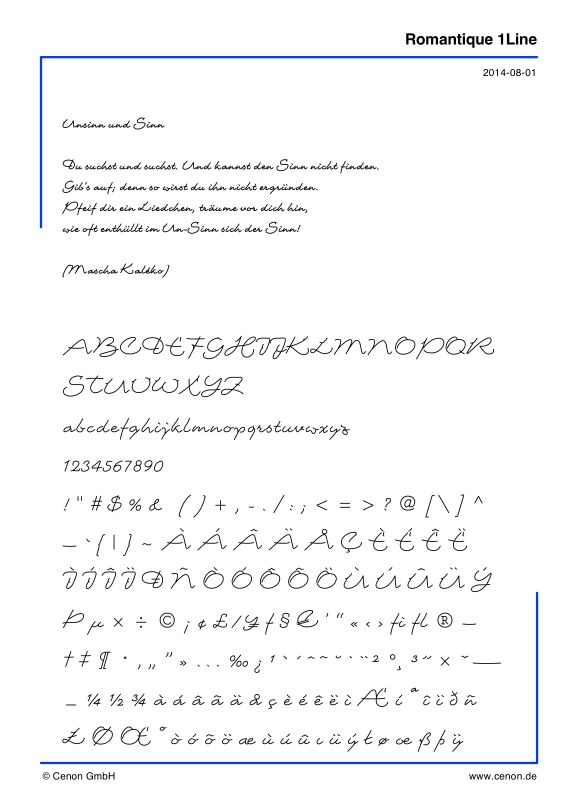 Romantique 1Line
2014-08-01
Unsinn und Sinn
Du suchst und suchst. Und kannst den Sinn nicht finden.
Gib's auf; denn so wirst du ihn nicht ergründen.
Pfeif dir ein Liedchen, träume vor dich hin,
wie oft enthüllt im Un-Sinn sich der Sinn!
(Mascha Kaléko)
ABCDEFGHIJKLMNOPQR
STUVWXYZ
abcdefghijklmnopqrstuvwxyz
1234567890
! " # $ % & ( ) + , - . / : ; < = > ? @ [ \ ] ^
_ ` { | } ~ À Á Â Ä Å Ç È É Ê Ë
Ì Í Î Ï Ð Ñ Ò Ó Ô Õ Ö Ù Ú Û Ü Ý
Þ µ × ÷ © ¡ ¢ £ / ¥ ƒ § € ' “ « ‹ › fi fl ® –
† ‡ ¶ · ‚ „ ” » … ‰ ¿
¼ ½ ¾ à á â ã ä å ç è é ê ë ì Æ í ª î ï ð ñ
Ł Ø Œ º ò ó ô õ ö æ ù ú û ı ü ý ł ø œ ß þ ÿ
© Cenon GmbH
www.cenon.de